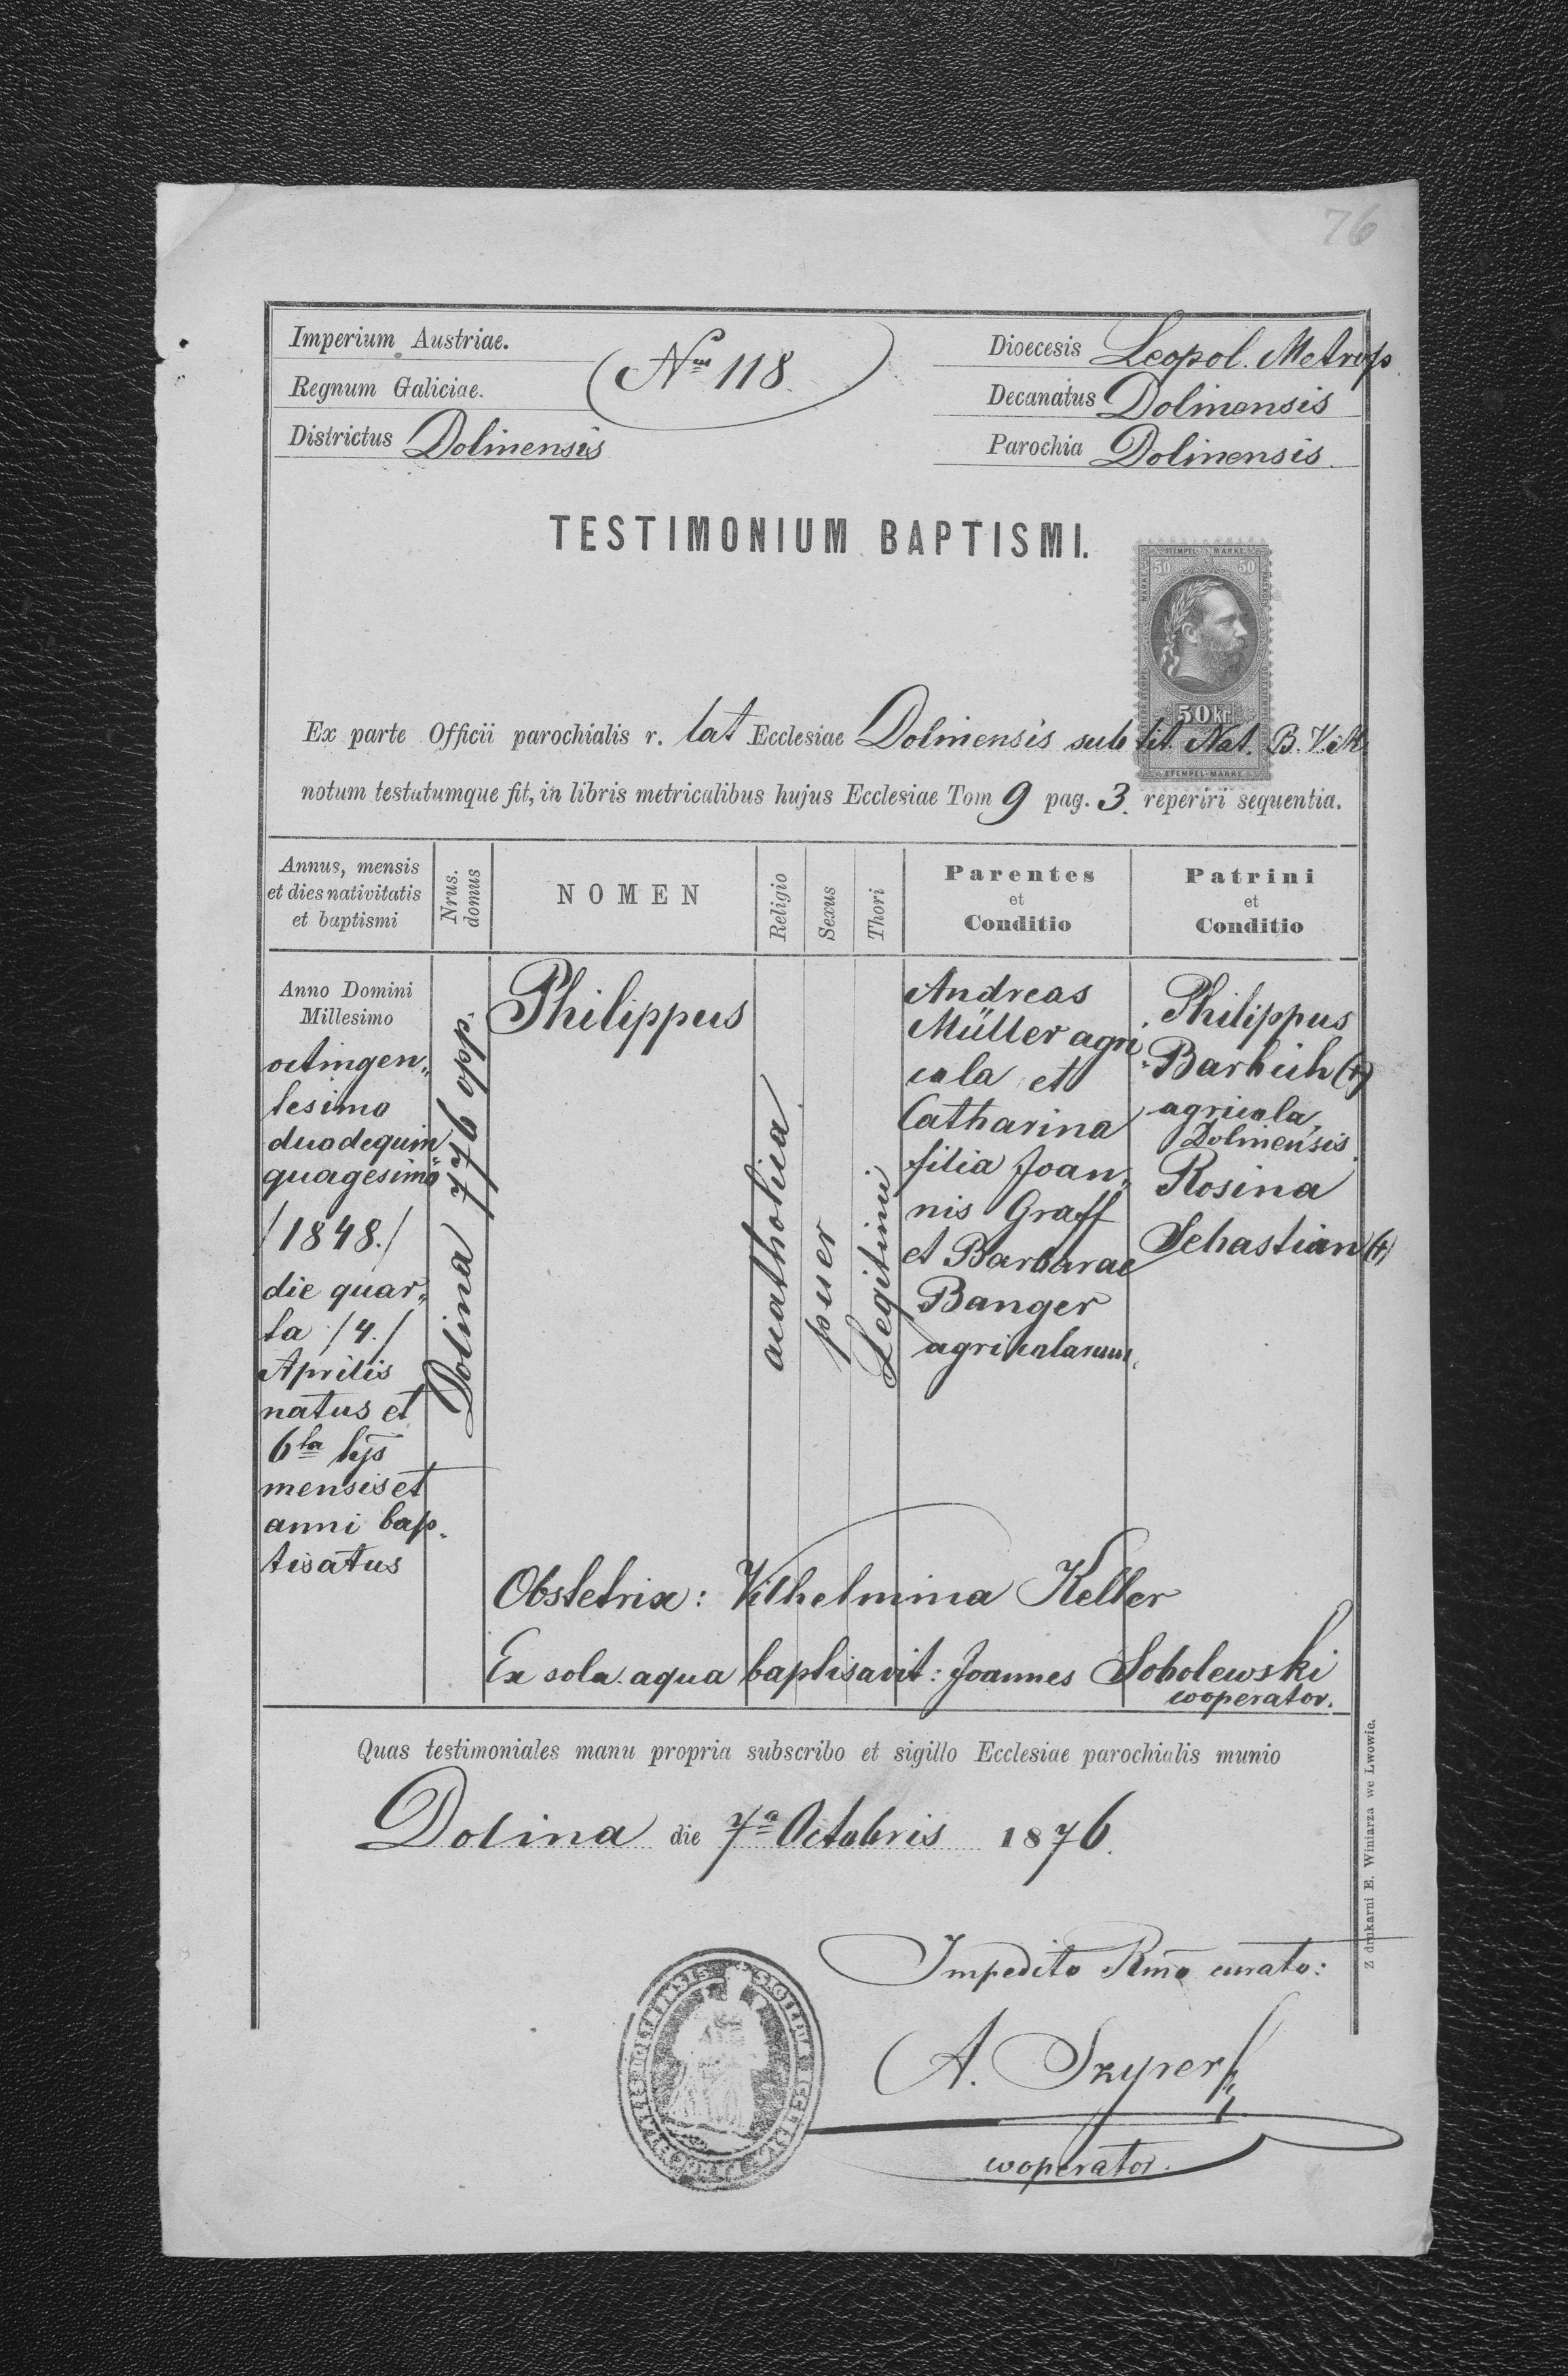 76
Imperium Austriae.
Nrus 118
Dioecesis Leopol. Metrop.
Regnum Galiciae.
Decanatus Dolinensis
Districtus Dolinensis
Parochia Dolinensis
TESTIMONIUM BAPTISMI.
STEMPEL-MARKE
50 50
50 kr.
STEMPEL-MARKE
Ex parte Officii parochialis r. lat Ecclesiae Dolinensis sub tit. Nat. B. V. M.
notum testatumque fit, in libris metricalibus hujus Ecclesiae Tom 9 pag. 3. reperiri sequentia.
Annus, mensis
et dies nativitatis
et baptismi
Nrus.
domus
NOMEN
Religio
Sexus
Thori
Parentes
et
Conditio
Patrini
et
Conditio
Anno Domini
Millesimo
octingen„
tesimo
duodequin„
quagesimo
/1848./
die quar„
ta /4./
Aprilis
natus et
6ta hjs
mensis et
anni bap„
tisatus
Dolina 776 opp.
Philippus
acatholica
puer
Legitimi
Andreas
Müller agri„
cola et
Catharina
filia Joan„
nis Graff
et Barbarae
Banger
agricolarum.
Philippus
(+)
agricola
Dolinensis.
Rosina
Sebastian (+)
Obstetrix: Vilhelmina Keller
Ex sola aqua baptisavit: Joannes Sobolewski
cooperator.
Quas testimoniales manu propria subscribo et sigillo Ecclesiae parochialis munio
Dolina die 7a Octobris 1876.
Z drukarni E. Winiarza we Lwowie.
Impedito Rmo curato:
A.
cooperator.